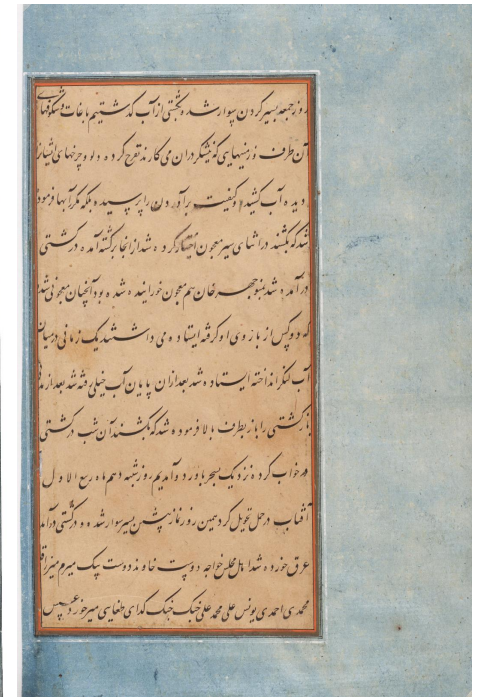 روز جمعه بسیر کردن سوار شده بکشتی از آب گذشتیم باغات و شکوفهای
آن طرف و زمینهایی که نیشکر دران می کارند تفرج کرده دلو و چرخهای اینها را
دیده آب کشیدن و کیفیت برآوردن را پرسیده بلکه مکرر آبها فرموده
شد که بکشند در اثنای سیر معجون اختیار کرده شد از انجا برگشته آمده در کشتی
در آمده شد بمنوچهر خان هم معجون خورانیده شده بود آنچنان معجونی شد
که دو کس از بازوی او گرفته ایستاده می داشتند یک زمانی در میان
آب لنگر انداخته ایستاده شد بعد ازان پایان آب خیلی رفته شد بعد از مدتی
باز کشتی را باز بطرف بالا فرموده شد که بکشند آن شب در کشتی
در خواب کرده نزدیک بسحر باوردو آمدیم روز شنبه دهم ماه ربیع الاول
آفتاب در حمل تحویل کرد همین روز نماز پیشین بسیر سوار شده و در کشتی درآمده
عرق خورده شد اهل مجلس خواجه دوست خاوند دوست بیک میرم میرزا قلی
محمدی احمدی یونس علی محمد علی جنگ جنگ گدای طغایی میر خورد عسس